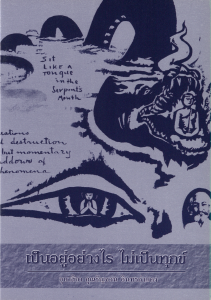 Sit
LIKE A
TONGUE
in the
Serpent's
Mouth
creations
d destruction,
but momentary
shadows of
phenomena.
เป็นอยู่อย่างไร ไม่เป็นทุกข์